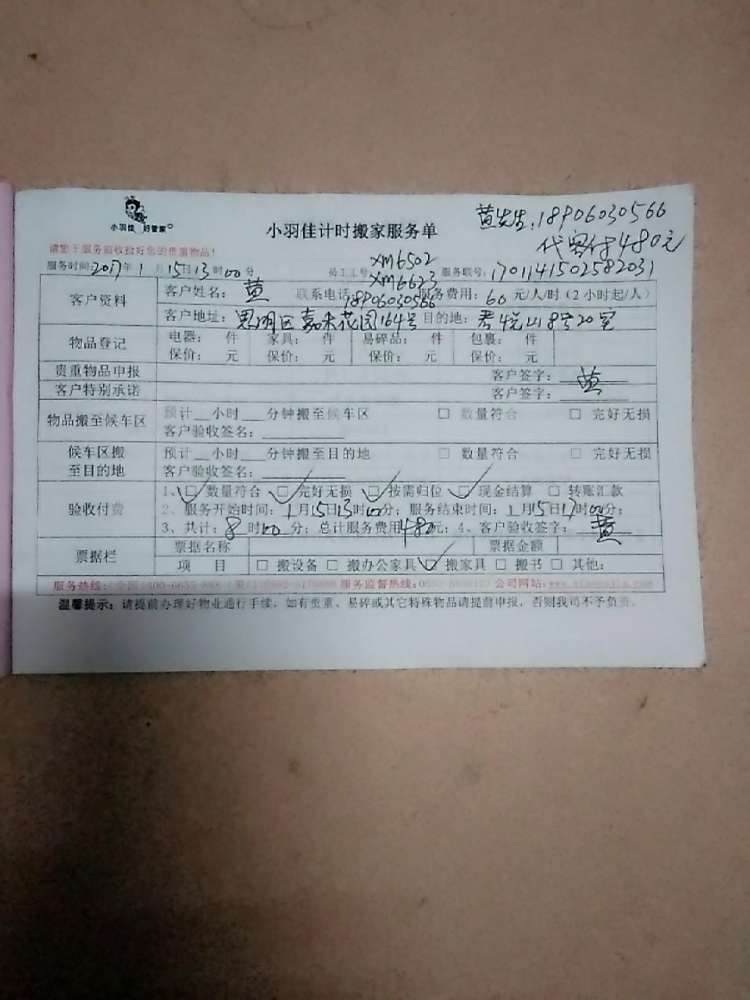 黄先生,18906030566
代客付480元
小羽佳 好管家
小羽佳计时搬家服务单
请您于服务前收拾好您的贵重物品!
XM6502
服务时间:2017年1月15日13时00分 员工工号: XM6623 服务联号:1701141502582031
客户资料 客户姓名:黄 联系电话:18906030566 服务费用:60元/人/时(2小时起/人)
客户地址:思明区嘉禾花园164号 目的地:
物品登记 电器: 件 家具: 件 易碎品: 件 包裹: 件
保价: 元 保价: 元 保价: 元 保价: 元
贵重物品申报 客户签字:黄
客户特别承诺 客户签字:
物品搬至候车区 预计__小时__分钟搬至候车区 □ 数量符合 □ 完好无损
客户验收签名:
候车区搬至目的地 预计__小时__分钟搬至目的地 □ 数量符合 □ 完好无损
客户验收签名:
验收付费 1、☑ 数量符合 ☑ 完好无损 ☑ 按需归位 ☑ 现金结算 □ 转账汇款
2、服务开始时间:1月15日13时00分;服务结束时间:1月15日17时00分;
3、共计:8时00分;总计服务费用480元;4、客户验收签字:黄
票据栏 票据名称 票据金额
项 目 □ 搬设备 □ 搬办公家具 ☑ 搬家具 □ 搬书 □ 其他:
服务热线: 服务监督热线: 公司网站:
温馨提示:请提前办理好物业通行手续,如有贵重、易碎或其它特殊物品请提前申报,否则我司不予负责。